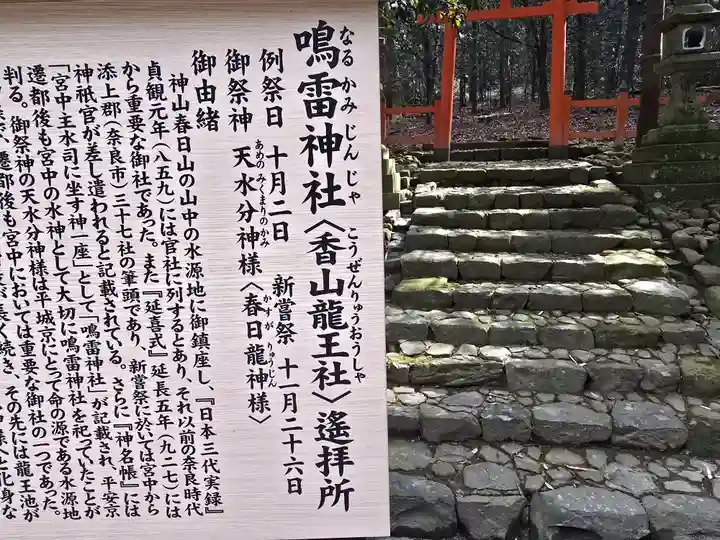 鳴雷神社〈香山龍王社〉遙拝所
なる かみ じん じゃ こうぜんりゅうおうしゃ
例祭日 十月二日 新嘗祭 十一月二十六日
御祭神 天水分神様〈春日龍神様〉
あめの みくまりのかみ かすが りゅうじん
御由緒
神山春日山の山中の水源地に御鎮座し、『日本三代実録』
貞観元年(八五九)には官社に列するとあり、それ以前の奈良時代
から重要な御社であった。また『延喜式』延長五年(九二七)には
添上郡(奈良市)三十七社の筆頭であり、新嘗祭に於いては宮中から
神祇官が差し遣われると記載されている。さらに『神名帳』には
「宮中主水司に坐す神一座」として「鳴雷神社」が記載され、平安京
遷都後も宮中の水神として大切に鳴雷神社を祀っていたことが
判る。御祭神の天水分神様は平城京にとって命の源である水源地
遷都後も宮中においては重要な御社の一つであった。
長く続き、その先には龍王池が
化身な